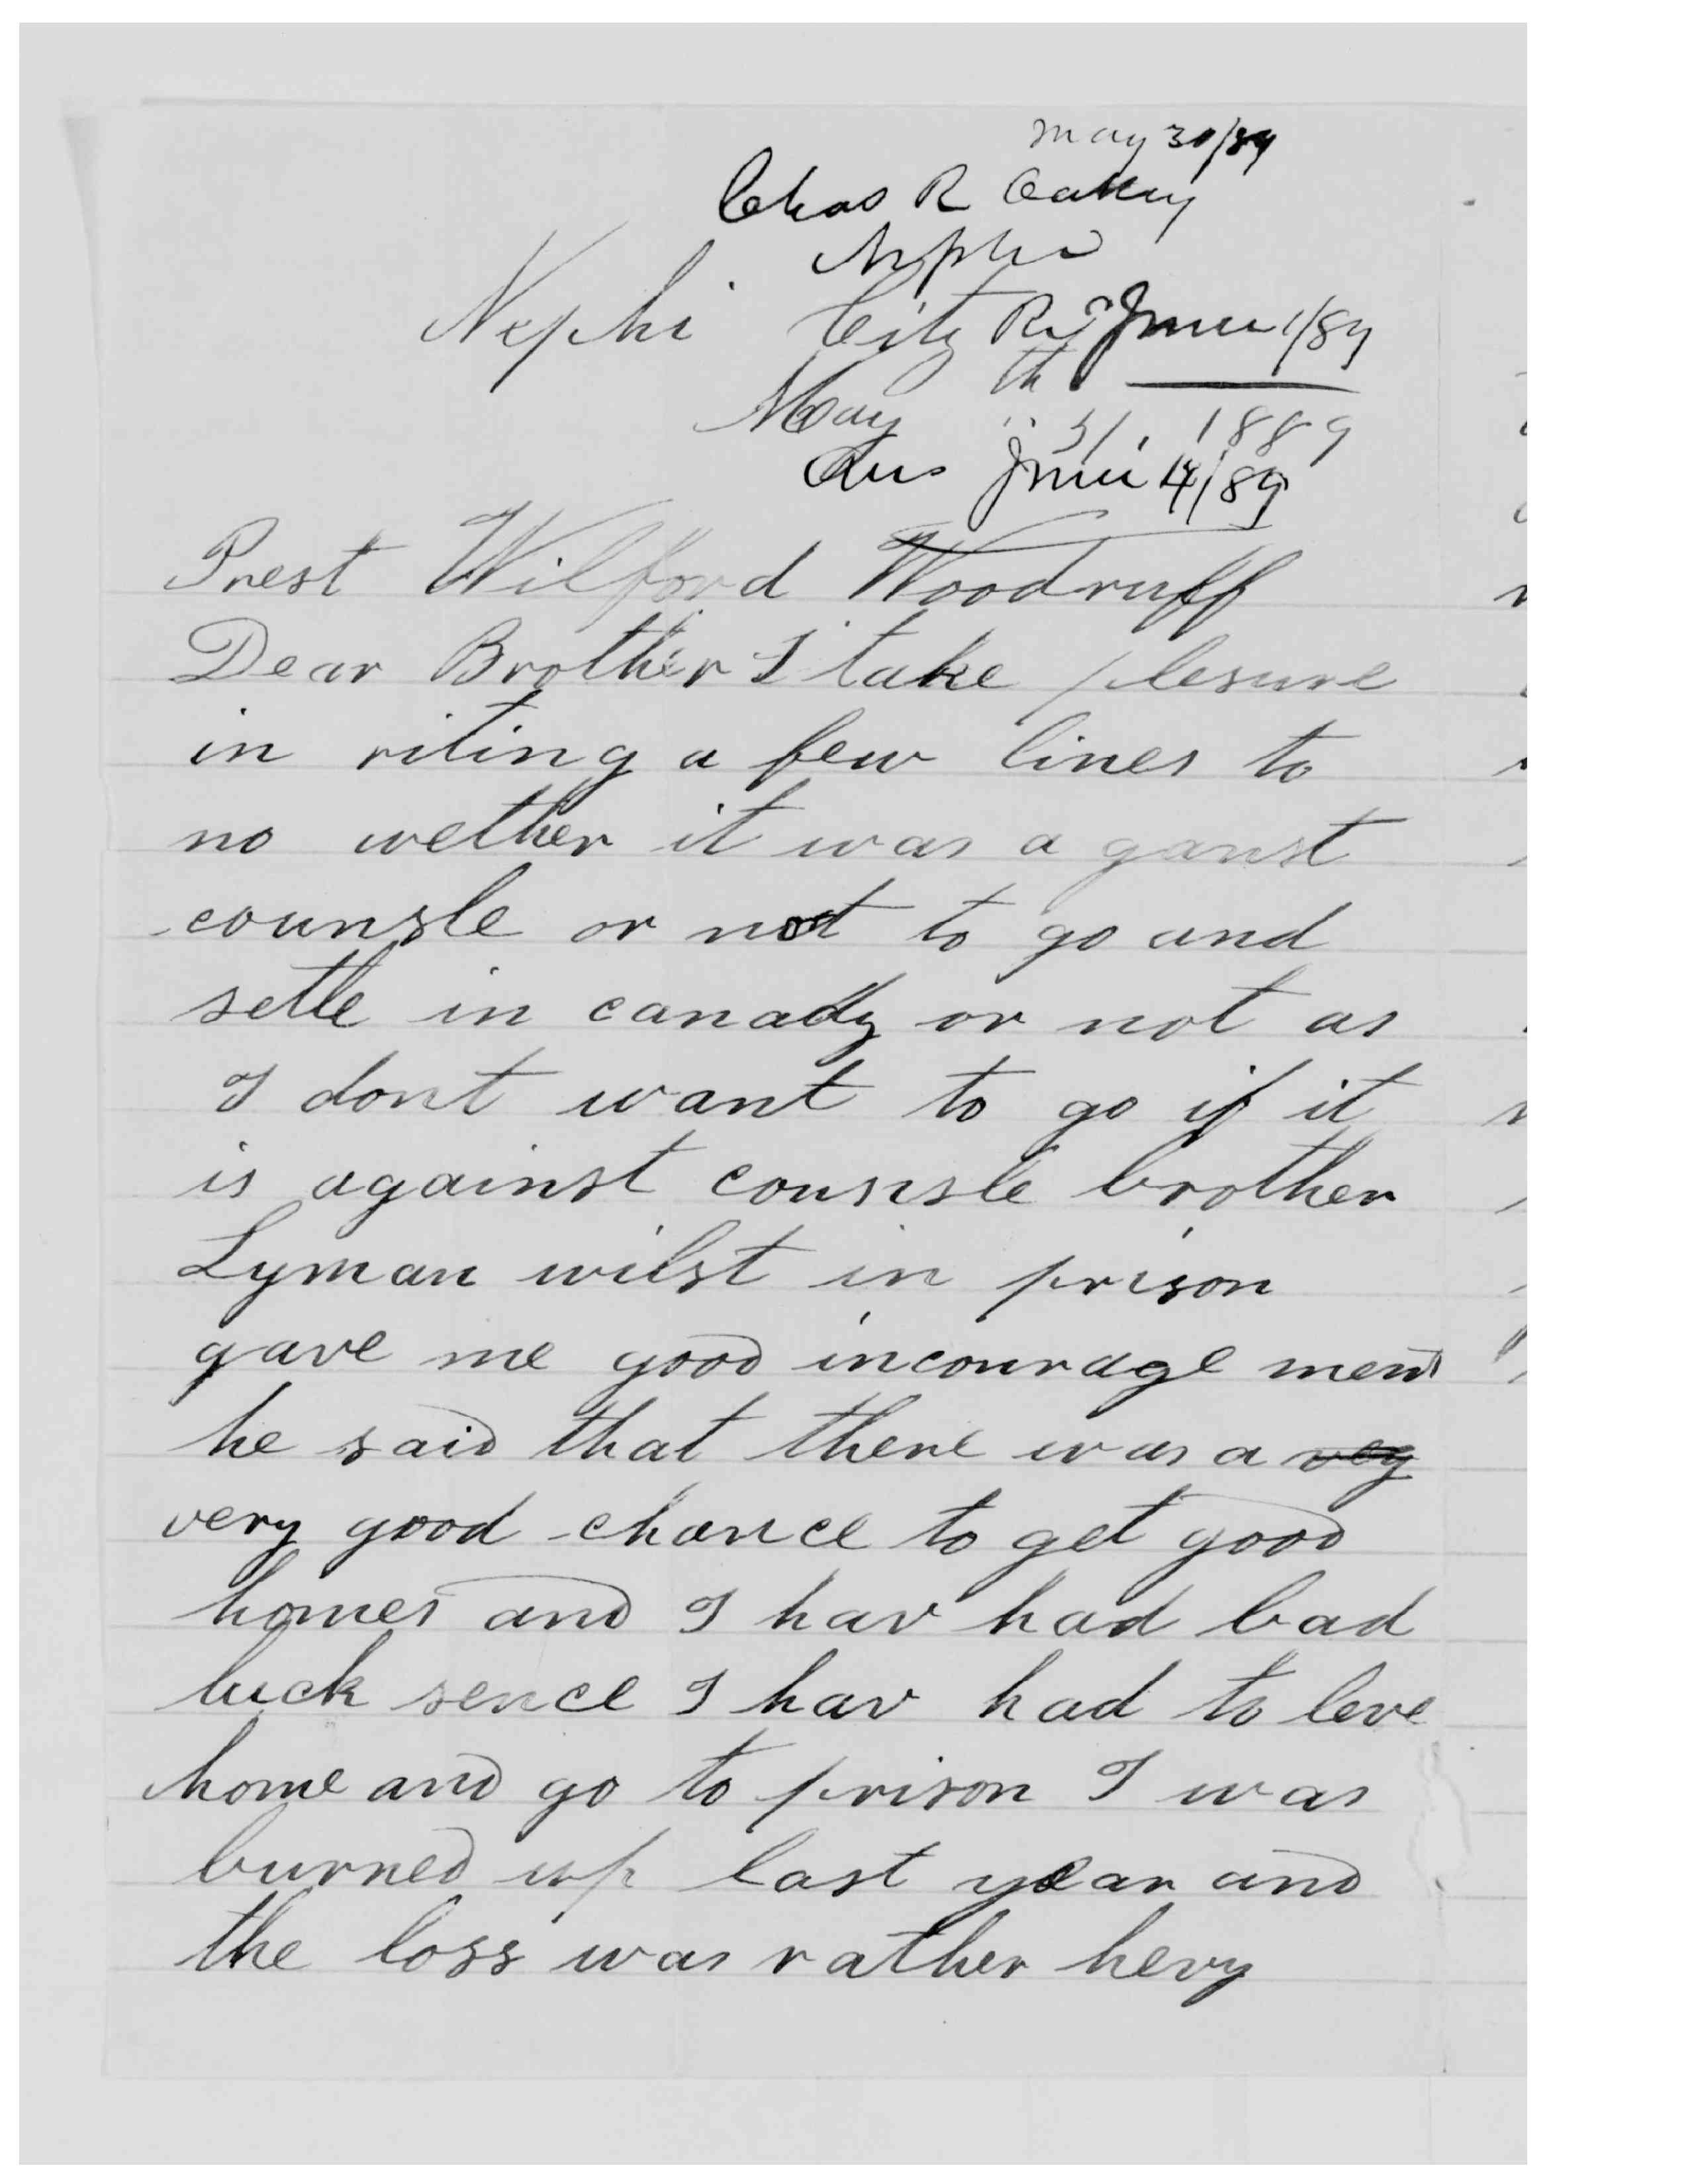 May 30/89
Chas R Oakey
Nephi
Nephi City Rec June 1/89
May th 31. 1889
Ans June 14/89
Prest Wilford Woodruff
Dear Brother I take plesure
in riting a few lines to
no wether it was a ganst
counsle or not to go and
setle in canady or not as
I dont want to go if it
is against counsle brother
Lyman wilst in prison
gave me good incourage ment
he said that there was a vey
very good chance to get good
homes and I hav had bad
luck sence I hav had to leve
home and go to prison I was
burned up last year and
the loss was rather hevy